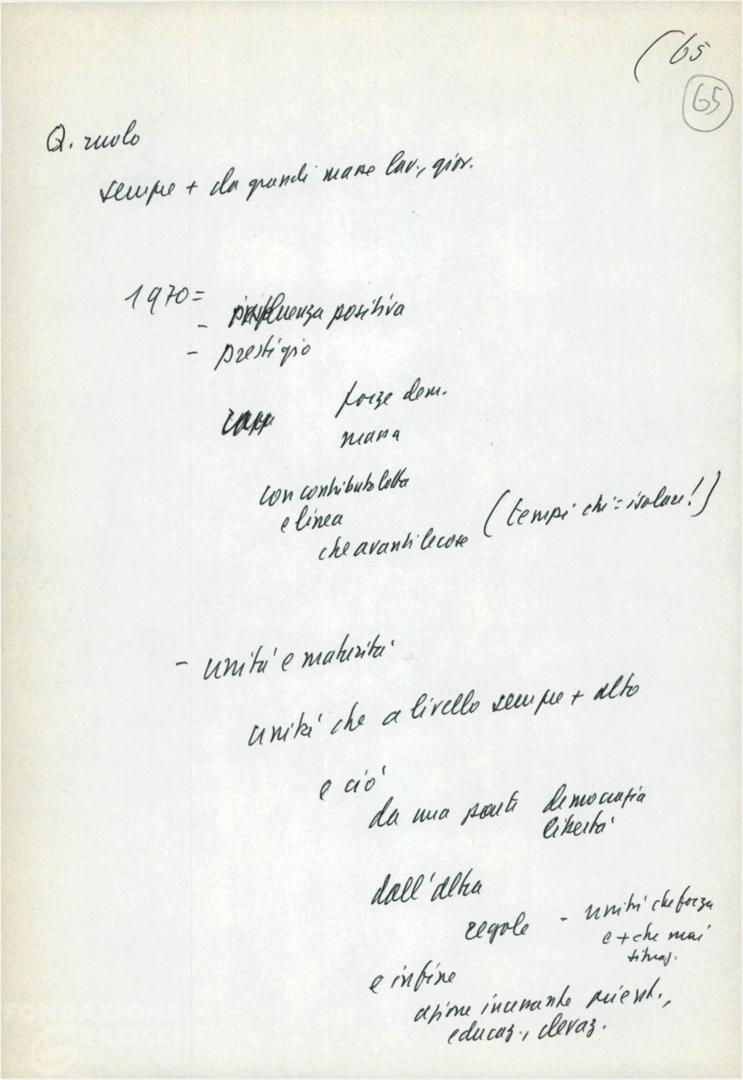 (65
65
Q. ruolo
sempre + da grandi masse lav., giov.
1970=
- influenza positiva
- prestigio
rapp forze dem.
massa
con contributo lotta
e linea
che avanti le cose (tempi chi = isolare!)
- unità e maturità
unità che a livello sempre + alto
e ciò
da una parte democrazia
libertà
dall'altra
regole - unità che forza
e + che mai
situaz.
e infine
azione incessante orient.,
educaz., elevaz.
FONDAZIONE
GRAMSCI